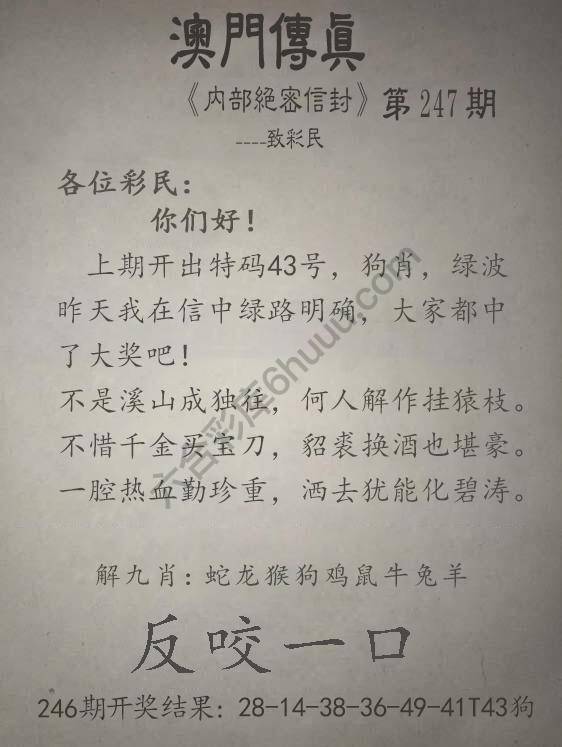 澳門傳眞
《内部絕密信封》第247期
----致彩民
各位彩民：
你们好！
上期开出特码43号，狗肖，绿波
昨天我在信中绿路明确，大家都中
了大奖吧！
不是溪山成独往，何人解作挂猿枝。
不惜千金买宝刀，貂裘换酒也堪豪。
一腔热血勤珍重，洒去犹能化碧涛。
解九肖：蛇龙猴狗鸡鼠牛兔羊
反咬一口
246期开奖结果：28-14-38-36-49-41T43狗
六合彩库6huuu.com